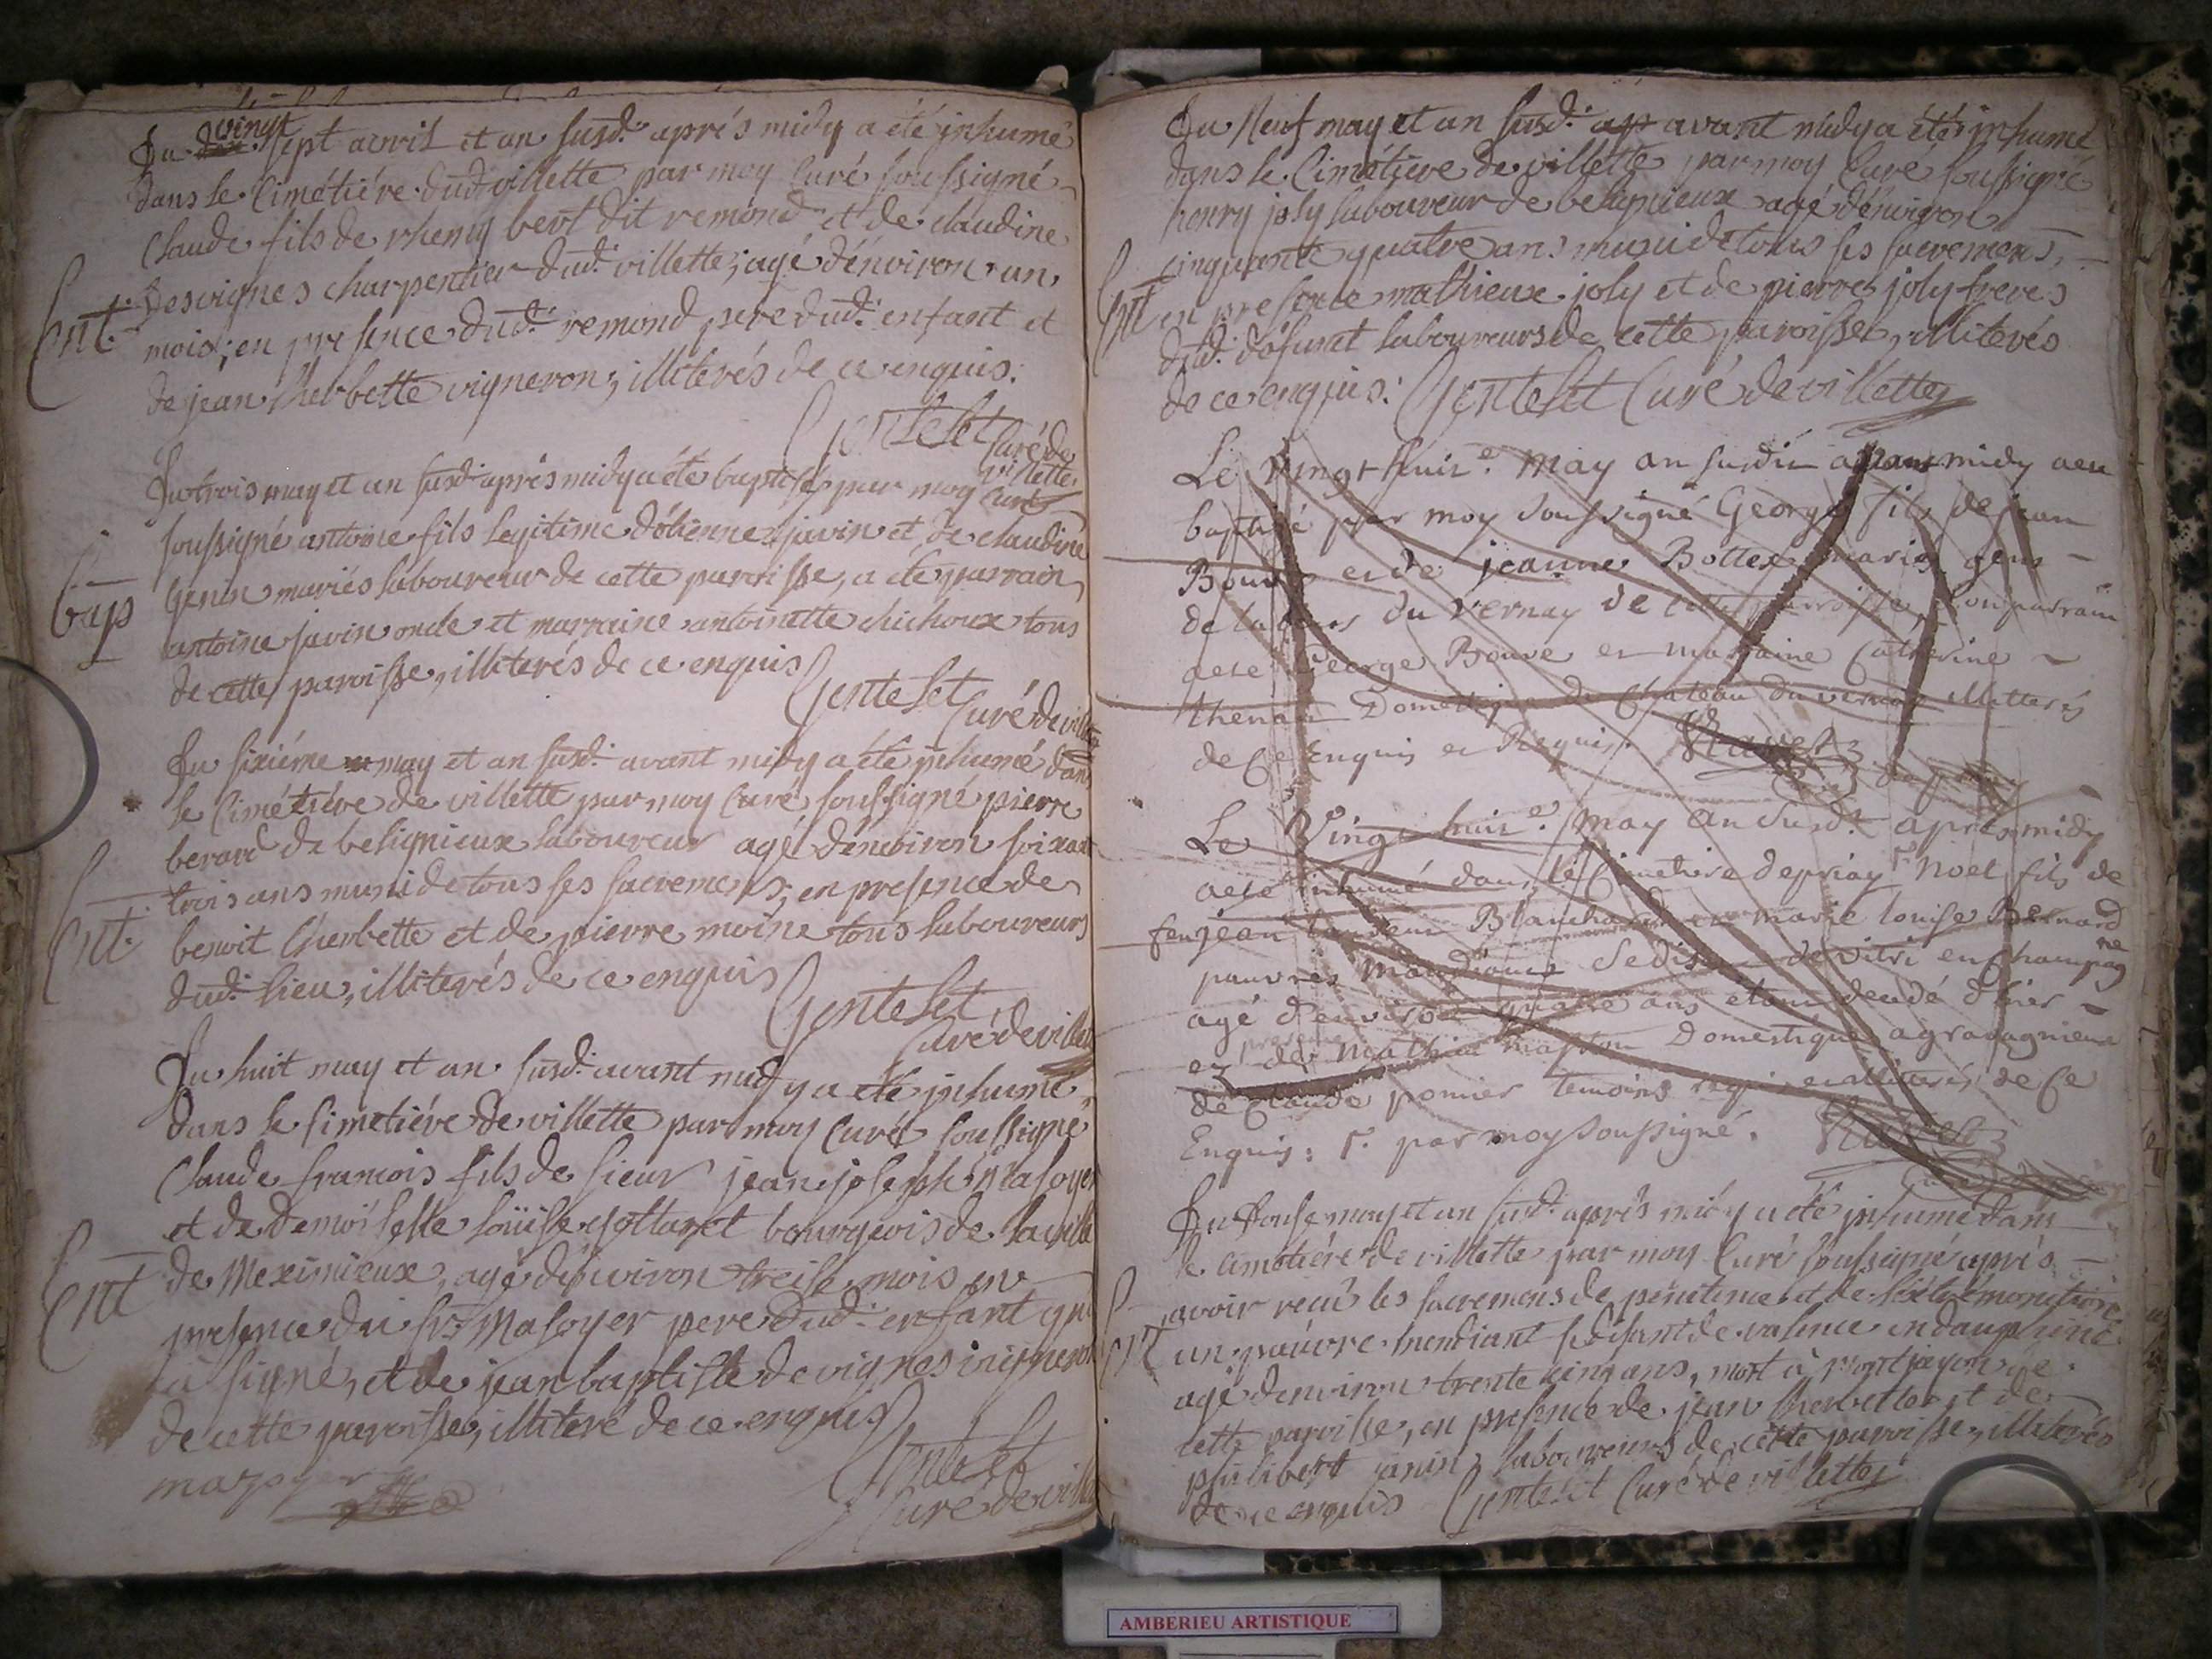 vingt
Du dix sept avril et an susd. aprés midy a été inhumé
dans le Cimétiére dud. villette par moy Curé soussigné
Claude fils de rheny bert dit remond et de claudine
desvignes charpentier dud. villette; agé d'environ un
Ent.
mois; en presence dud. remond pere dud. enfant et
de jean therbette vigneron; illiterés de ce enquis.
Gentelet Curé de
villette
Du trois may et an susd. aprés midy a été baptisé par moy Curé
soussigné antoine fils Legitime d'étienne javin et de claudine
Bap
genin mariés laboureur de cette paroisse, a été parrain
antoine javin oncle et marraine antoinette chichoux tous
de cette paroisse, illiterés de ce enquis
Gentelet
Curé de villette
Du sixiéme may et an susd. avant midy a été inhumé dans
le Cimétiére de villette par moy Curé soussigné pierre
berard de belignieux laboureur agé d'environ soixante
trois ans muni de tous ses sacremens; en presence de
Ent.
benoit therbette et de pierre moine tous laboureurs
dud. lieu, illiterés de ce enquis
Gentelet
Curé de villette
Du huit may et an susd. avant midy a été inhumé
dans le Cimetiére de villette par moy Curé soussigné
Claude francois fils de sieur jean joseph Masoyer
et de Demoiselle Loüise bourgeois de la ville
Ent
de Meximieux, agé d'environ treise mois en
presence du sr. Masoyer pere dud. enfant qui
a signé, et de jean baptiste devignes vigneron
de cette paroisse, illiteré de ce enquis
mazoyer
Gentelet
Curé de villette
Du Neuf may et an susd. ap avant midy a été inhumé
dans le Cimétiere de villette par moy Curé soussigné
henry joly laboureur de belignieux agé d'environ
cinquante quatre ans muni de tous ses sacremens,
Ent
en presence mathieux joly et de pierre joly freres
dud. défunct laboureurs de cette paroisse, illiterés
de ce enquis: Gentelet Curé de villette
Le vingt huit.e may an susdit avant midy a eté
baptisé par moy soussigné George fils de jean
Bouve et de jeanne Bottex mariés gens
de labeurs du vernay de cette parroisse, son parrain
a eté George Bouve et marraine Catherine
thenan Domestique de Chateau du vernay illitterés
de Ce Enquis et Requis.
Le Vingt huit.e may an susd. aprés midy
a eté inhumé dans le Cimetiere de priay noel fils de
feu jean Blanchard et marie louise Bernard
pauvres mandians se disant de vitri en champagne
agé d'environ quatre ans etant decedé d'hier
presence
et de mathieu Domestique a gravagnieux
de Claude ponier temoins requis et illiterés de Ce
Enquis: par moy soussigné.
Du Douse may et an susd. aprés midy a été inhumé dans
le Cimetiére de villette par moy Curé soussigné aprés
avoir recu les sacremens de pénitence et de l'éxtrémonction
Ent
un pauvre mendiant se disant de valence en dauphiné
agé d'environ trente cinq ans, mort à montjayon de
cette paroisse, en presence de jean therbette et de
philibert janin laboureurs de cette paroisse, illiterés
de ce enquis Gentelet Curé de villette
AMBERIEU ARTISTIQUE